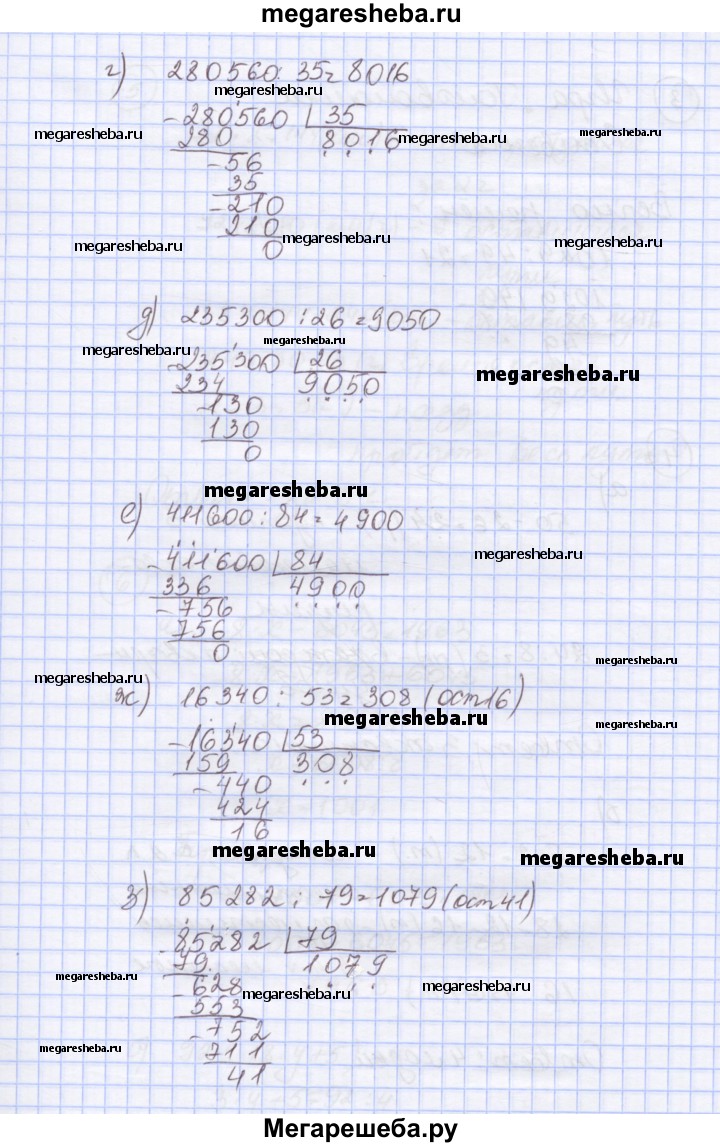 megaresheba.ru
г) 280560 : 35 = 8016
megaresheba.ru
- 280560 | 35
megaresheba.ru megaresheba.ru megaresheba.ru
280 8016
- 56
35
- 210
210 megaresheba.ru
megaresheba.ru megaresheba.ru
0
д) 235300 : 26 = 9050
megaresheba.ru
megaresheba.ru
- 235300 | 26
megaresheba.ru
234 9050
- 130
130
0
megaresheba.ru
е) 411600 : 84 = 4900
megaresheba.ru
- 411600 | 84
336 4900
- 756
756
0
megaresheba.ru
megaresheba.ru
ж) 16340 : 53 = 308 (ост 16)
megaresheba.ru
megaresheba.ru
- 16340 | 53
159 308
- 440
424
16
megaresheba.ru
megaresheba.ru
з) 85282 : 79 = 1079 (ост 41)
- 85282 | 79
79 1079
megaresheba.ru
- 628 megaresheba.ru megaresheba.ru
553
- 752
711
megaresheba.ru
41
Мегарешеба.ру